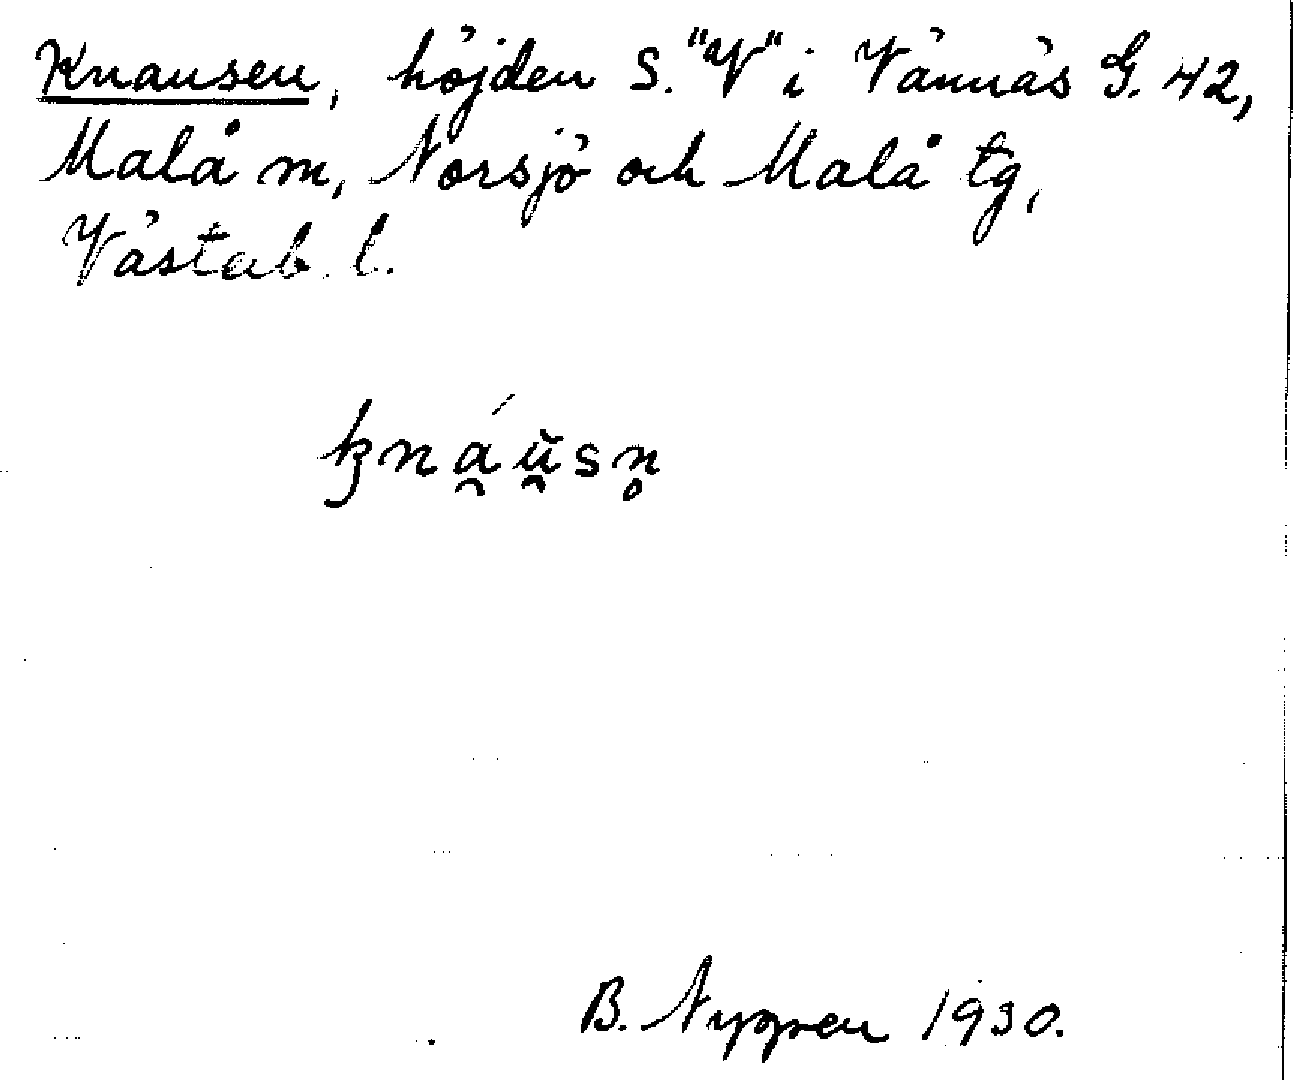 Knausen, höjden S. "V" i Vännäs G. 42,
Malå m, Norsjö och Malå tg,
Västerb. l.
knáŭ̯sn̥
B. Nygren 1930.